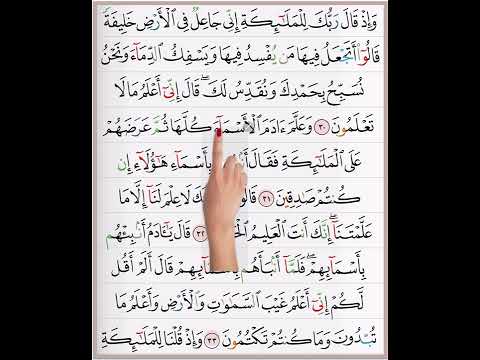 وَإِذْ قَالَ رَبُّكَ لِلْمَلَـٰٓئِكَةِ إِنِّى جَاعِلٌ فِى ٱلْأَرْضِ خَلِيفَةً
قَالُوٓا۟ أَتَجْعَلُ فِيهَا مَن يُفْسِدُ فِيهَا وَيَسْفِكُ ٱلدِّمَآءَ وَنَحْنُ
نُسَبِّحُ بِحَمْدِكَ وَنُقَدِّسُ لَكَ ۖ قَالَ إِنِّىٓ أَعْلَمُ مَا لَا
تَعْلَمُونَ ٣٠ وَعَلَّمَ ءَادَمَ ٱلْأَسْمَآءَ كُلَّهَا ثُمَّ عَرَضَهُمْ
عَلَى ٱلْمَلَـٰٓئِكَةِ فَقَالَ بِأَسْمَآءِ هَـٰٓؤُلَآءِ إِن
كُنتُمْ صَـٰدِقِينَ ٣١ لَا عِلْمَ لَنَآ إِلَّا مَا
عَلَّمْتَنَآ ۖ إِنَّكَ أَنتَ ٱلْعَلِيمُ ٣٢ قَالَ يَـٰٓـَٔادَمُ أَنۢبِئْهُم
بِأَسْمَآئِهِمْ ۖ فَلَمَّآ أَنۢبَأَهُم بِأَسْمَآئِهِمْ قَالَ أَلَمْ أَقُل
لَّكُمْ إِنِّىٓ أَعْلَمُ غَيْبَ ٱلسَّمَـٰوَٰتِ وَٱلْأَرْضِ وَأَعْلَمُ مَا
تُبْدُونَ وَمَا كُنتُمْ تَكْتُمُونَ ٣٣ وَإِذْ قُلْنَا لِلْمَلَـٰٓئِكَةِ